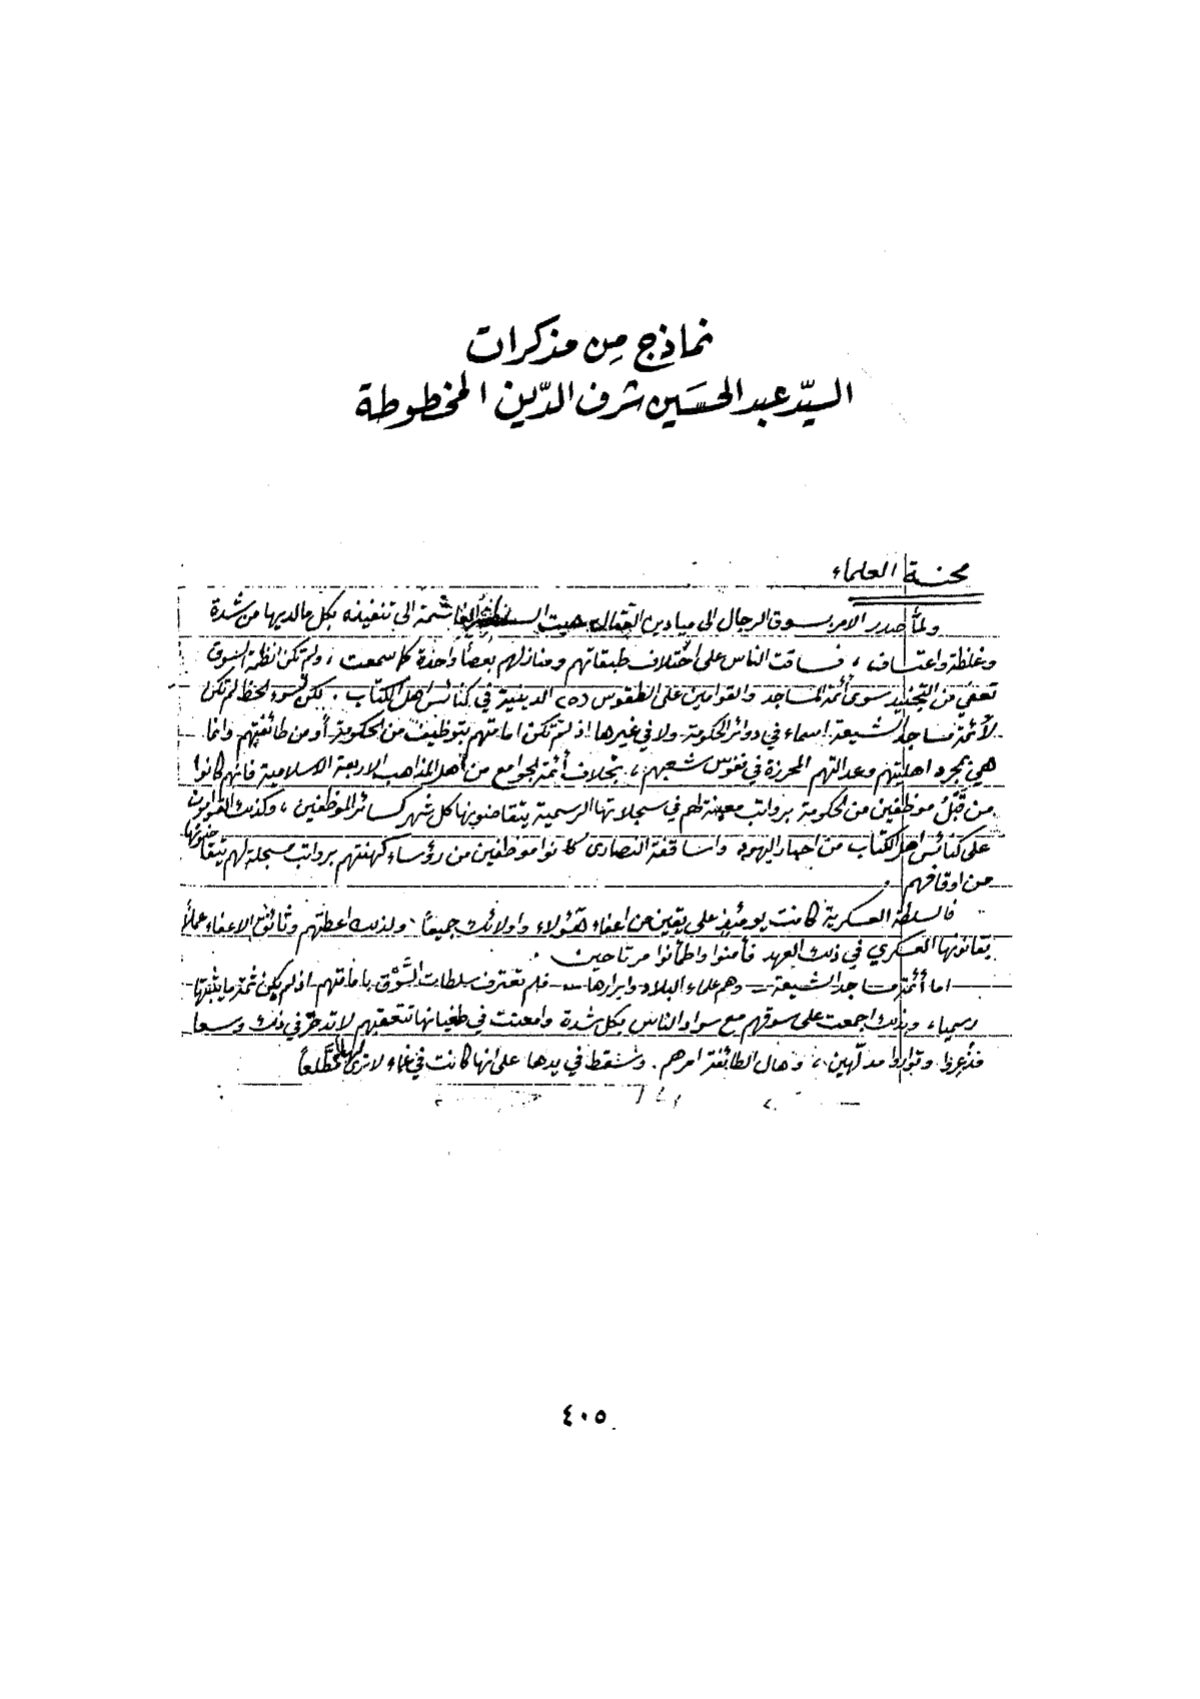 نماذج من مذكرات
السيّد عبد الحسين شرف الدّين المخطوطة
محنة العلماء
ولمّا صدر الامر بسوق الرجال الى ميادين القتال هبت السلطة الغاشمة الى تنفيذه بكل ما لديها من شدة
وغلظة واعتساف، فساقت الناس على اختلاف طبقاتهم ومنازلهم بعصا واحدة كما سمعت، ولم تكن انظمة السوق
تعفي من التجنيد سوى أئمة المساجد والقوامين على الطقوس الدينية في كنائس اهل الكتاب. لكن لسوء الحظ لم تكن
لأئمة مساجد الشيعة اسماء في دوائر الحكومة ولا في غيرها اذ لم تكن امامتهم بتوظيف من الحكومة أو من طائفتهم وانما
هي بمجرد اهليتهم وعدالتهم المحرزة في نفوس شعبهم، بخلاف أئمة الجوامع من اهل المذاهب الاربعة الاسلامية فانهم كانوا
من قبل موظفين من الحكومة برواتب معينة لهم في سجلاتها الرسمية يتقاضونها كل شهر كسائر الموظفين، وكذلك القوامون
على كنائس اهل الكتاب من احبار اليهود واساقفة النصارى كانوا موظفين من رؤساء كهنتهم برواتب مسجلة لهم يتقاضونها
من اوقافهم.
فالسلطة العسكرية كانت يومئذ على يقين من اعفاء هؤلاء واولائك جميعاً. ولذلك اعطتهم وثائق الاعفاء عملاً
بقانونها العسكري في ذلك العهد فأمنوا واطمأنوا مرتاحين.
اما أئمة مساجد الشيعة – وهم علماء البلاد وابرارها – فلم تعترف سلطات السَّوْق بامامتهم اذ لم يكن ثمة ما يثبتها
رسمياً، ولذلك اجمعت على سوقهم مع سواد الناس بكل شدة وامعنت في طغيانها تتعقبهم لا تدخر في ذلك وسعا
فذعروا وتواروا مدلّهين، وهال الطائفة امرهم. وسُقط في يدها على انها كانت في غماء لا ترى لها مطّلعاً
٤٠٥